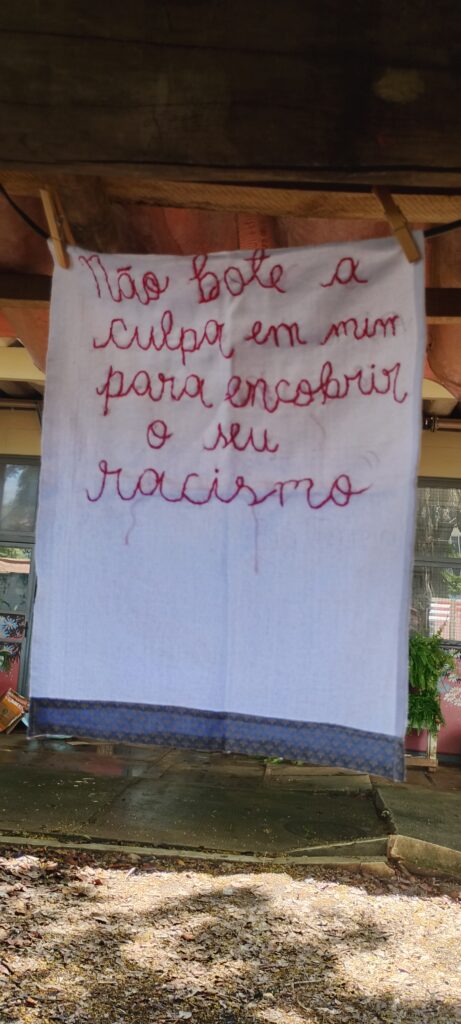 Não bote a
culpa em mim
para encobrir
o seu
racismo